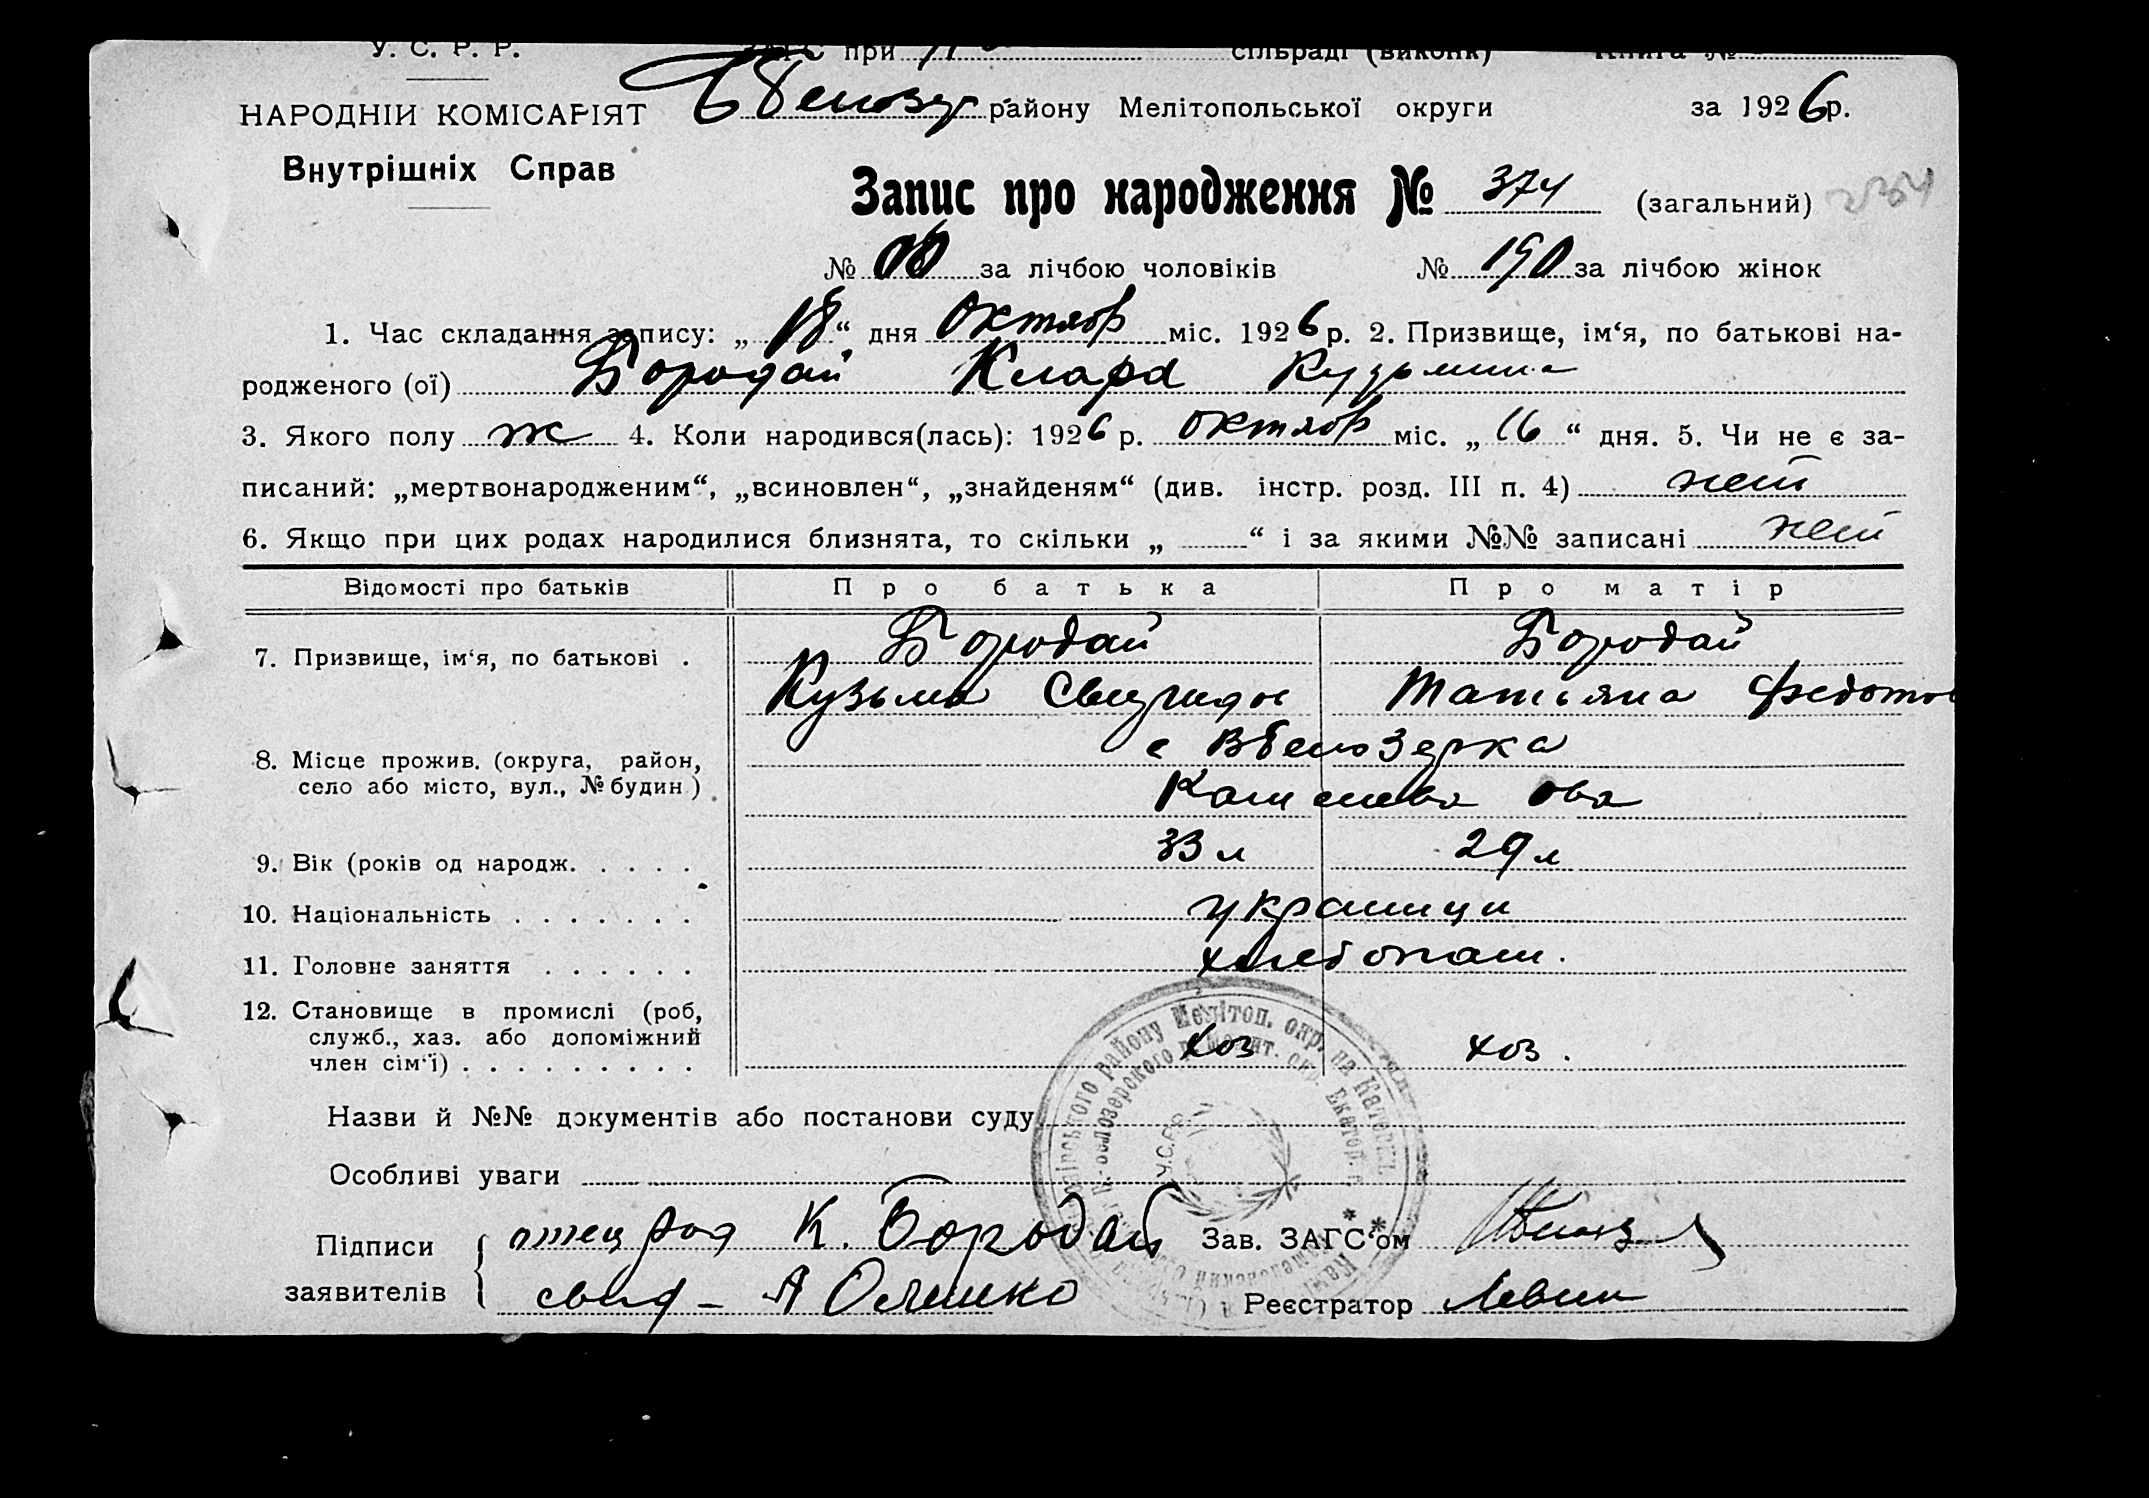 У. С. Р. Р. ЗАГС при сільраді (виконк) Книга №
НАРОДНІЙ КОМІСАРІЯТ районy Мелітопольської округи за 1926 р.
Внутрішніх Справ
Запис про народження № 374 (загальний)
№ за лічбою чоловіків № 190 за лічбою жінок
1. Час складання запису: „ 18 “ дня октябр міс. 1926 р. 2. Призвище, ім‘я, по батькові на-
родженого (ої) Бородай Клара Кузьмина
3. Якого полу ж 4. Коли народився(лась): 1926 р. октябр міс. „ 16 “ дня. 5. Чи не є за-
писаний: „мертвонародженим“, „всиновлен“, „знайденям“ (див. інстр. розд. III п. 4) нет
6. Якщо при цих родах народилися близнята, то скільки „ “ і за якими №№ записані нет
Відомості про батьків Про батька Про матір
Бородай Бородай
7. Призвище, ім‘я, по батькові .
Кузьма Татьяна Федотов
с Вбелозерка
8. Місце прожив. (округа, район,
село або місто, вул., № будин)
9. Вік (років од народж. . . . . 33 л 29 л
10. Національність . . . . . . . украинци
11. Головне заняття . . . . . . хлебопаш.
12. Становище в промислі (роб,
служб., хаз. або допоміжний хоз хоз.
член сім‘ї) . . . . . . . . .
Назви й №№ документів або постанови суду
Особливі уваги
Підписи отец К. Бородай Зав. ЗАГС‘ом
заявителів свид - А Олешко Реєстратор Левин